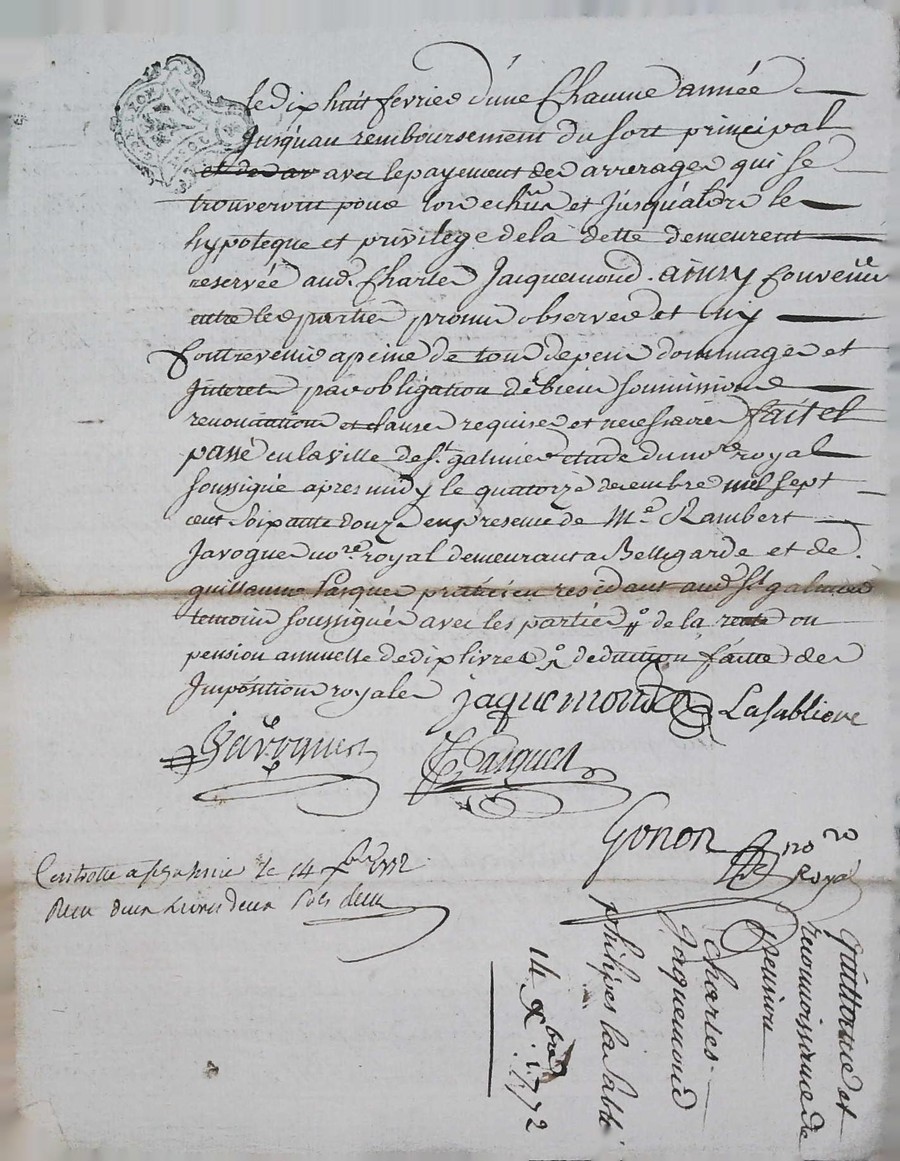 le dix huit fevrier d'une chacune année
jusqu'au remboursement du sort principal
et de ar avec le payement des arrerages qui se
trouveront pour lors echus et jusqu'alors les
hypoteque et privilege de la dette demeurent
reservée aud. Charles Jacquemond. ainsy convenu
entre les parties promis observer et n'y
contrevenir a peine de tous depens dommages et
interets par obligation de biens soumissions
renonciation et clauses requises et necessaires fait et
passé en la ville de St. galmier etude du nore. royal
soussigné apres midy le quatorze decembre mil sept
cent soixante douze en presence de Me. Rambert
Javogues nore. royal demeurant a Bellegarde et de
guillaume Pasquet praticien residant aud. St galmier
temoins soussignés avec les parties # de la rente ou
pension annuelle de dix livres # deduction faitte des
Impositions royales jaquemond Lasabliere
Javogues Pasquet
Gonon nore
Royal
Controllé a St galmier le 14 xbre 1772
Reçu deux livres deux sols
Quittance et
reconnoissance de
pension
Charles
Jaquemond
philipes la sabli
14 xbre 1772